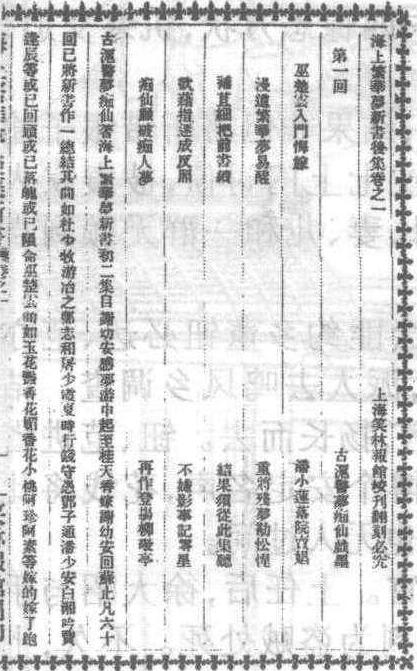 海上繁華夢新書後集卷之一 上海笑林報館校刊翻刻必究
第一回 古滬警夢痴仙戲墨
巫楚雲入門悔嫁 潘小蓮落院賣娼
漫道繁華夢易醒 重將殘夢勸惺惺
補苴細把前書續 結果須從此集聽
欲藉指迷成反照 不嫌影事記零星
痴仙願破痴人夢 再作登場柳敬亭
古滬警夢痴仙著海上繁華夢新書初二集自謝幼安感夢游申起至桂天香嫁謝幼安回蘇止凡六十
回已將新書作一總結其間如杜少牧游冶之鄭志和屠少霞夏時行錢守愚鄧子通潘少安白湘吟賈
逢辰等或已回頭或已落魄或已隕命巫楚雲顏如玉花艷香花媚香花小桃阿珍阿素等嫁的嫁了跑